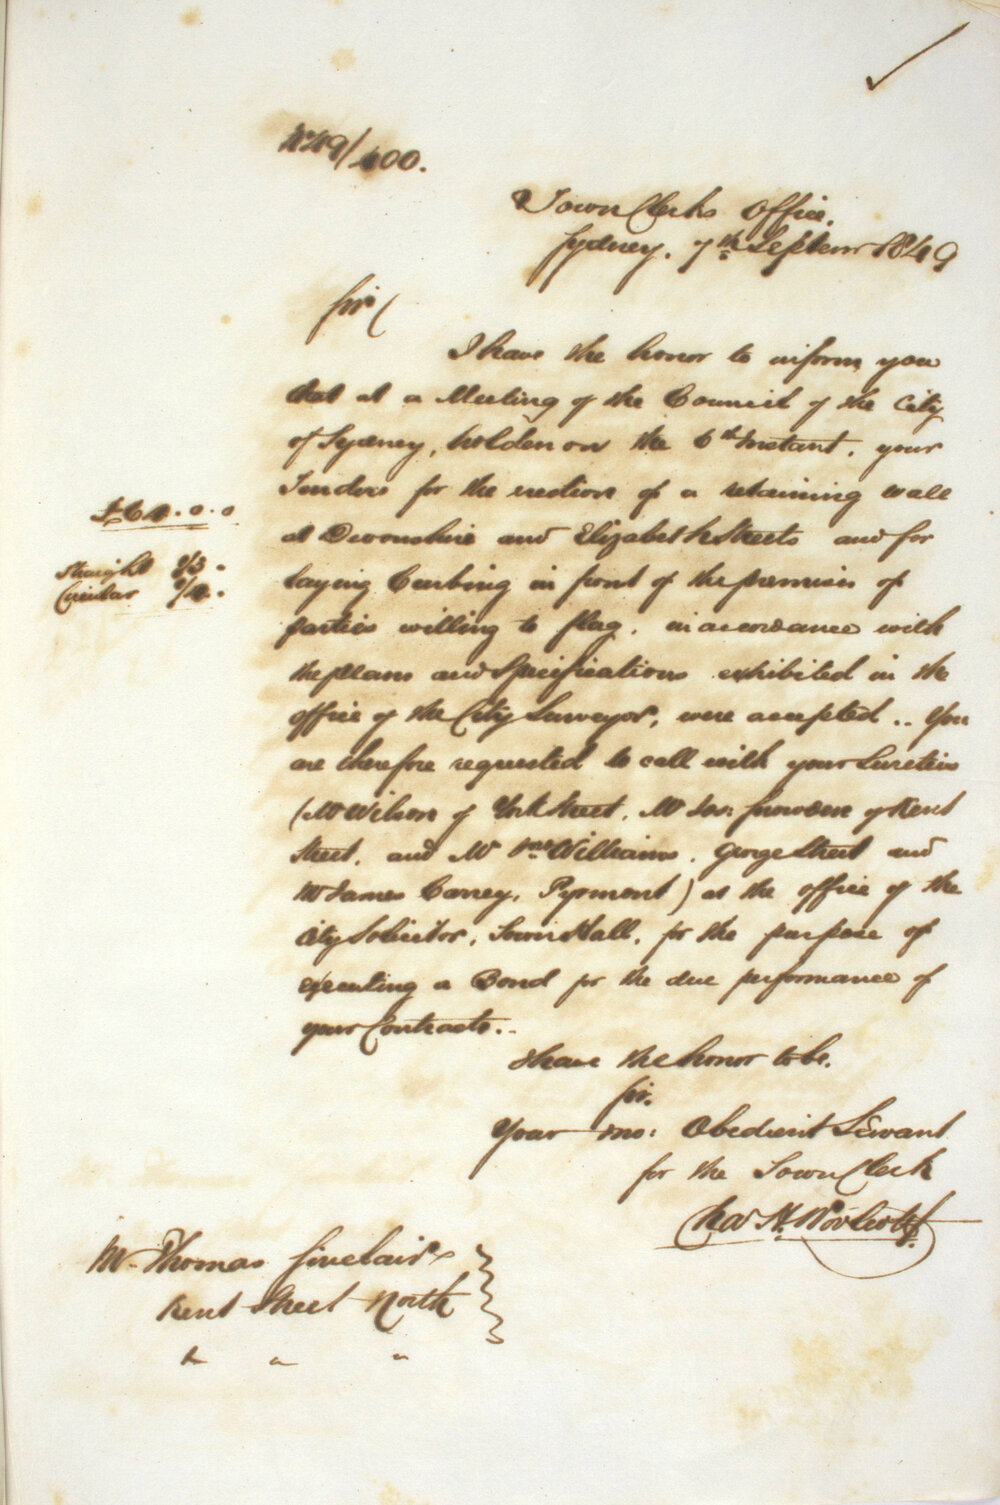 No 49/400.
Town Clerks Office.
Sydney. 7th Septemr 1849
Sir
I have the honor to inform you
that at a Meeting of the Council of the City
of Sydney, holden on the 6th Instant, your
Tenders for the erection of a retaining wall
£64.0.0
at Devonshire and Elizabeth Streets and for
Straight 2/3.
laying Curbing in front of the premises of
Circular
parties willing to flag, in accordance with
the plans and Specifications exhibited in the
office of the City Surveyor, were accepted.. You
are therefore requested to call with your Sureties
(Mr Wilson of York Street, Mr Snowden of Kent
Street, and Mr Williams, George Street and
Mr James Carrey, Pyrmont) at the office of the
City Solicitor, Town Hall, for the purpose of
executing a Bond for the due performance of
your Contracts..
I have the honor to be,
Sir,
Your mo: Obedient Servant
for the Town Clerk
Chas H. Woolcott
Mr Thomas Sinclair
Kent Street North